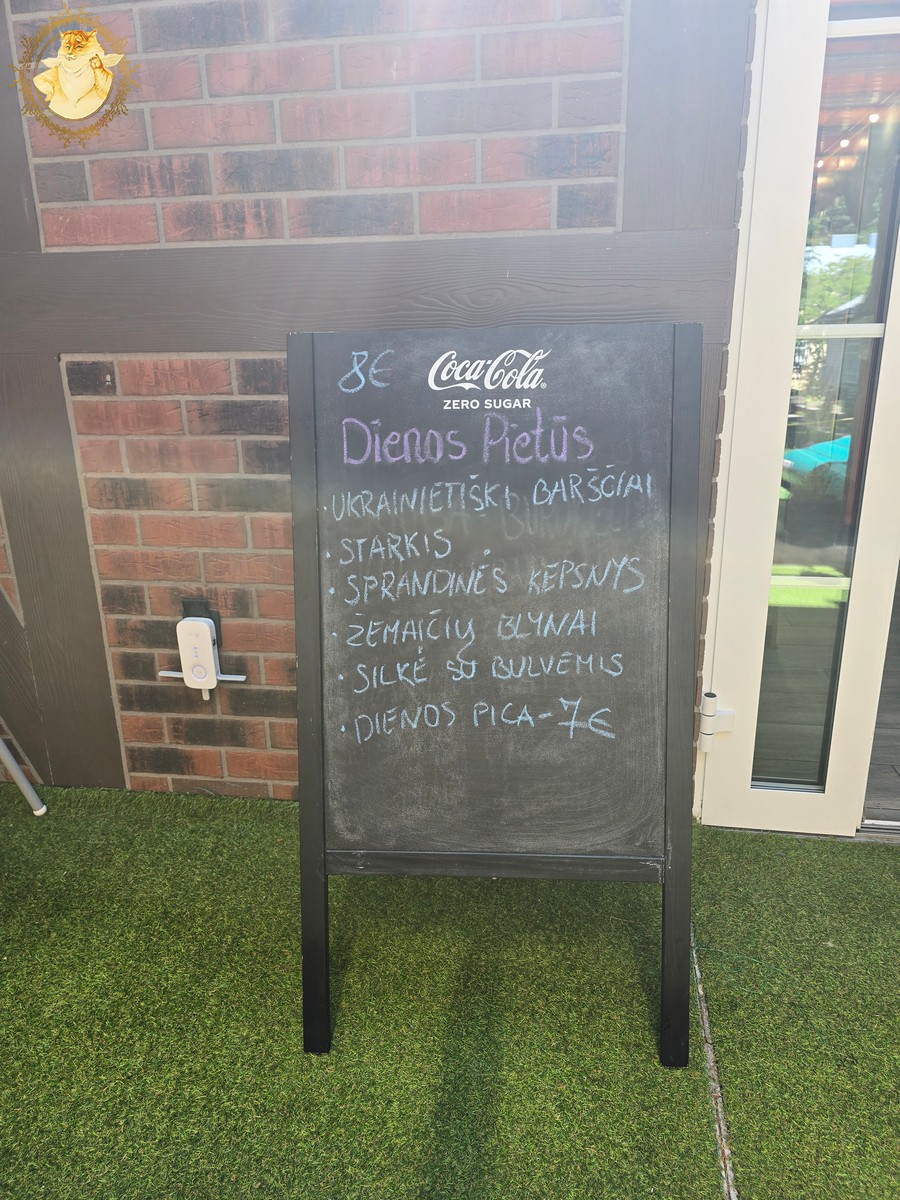 8€
Coca-Cola
ZERO SUGAR
Dienos Pietūs
· UKRAINIETIŠKI BARŠČIAI
· STARKIS
· SPRANDINĖS KEPSNYS
· ŽEMAIČIŲ BLYNAI
· SILKĖ SU BULVĖMIS
· DIENOS PICA - 7€